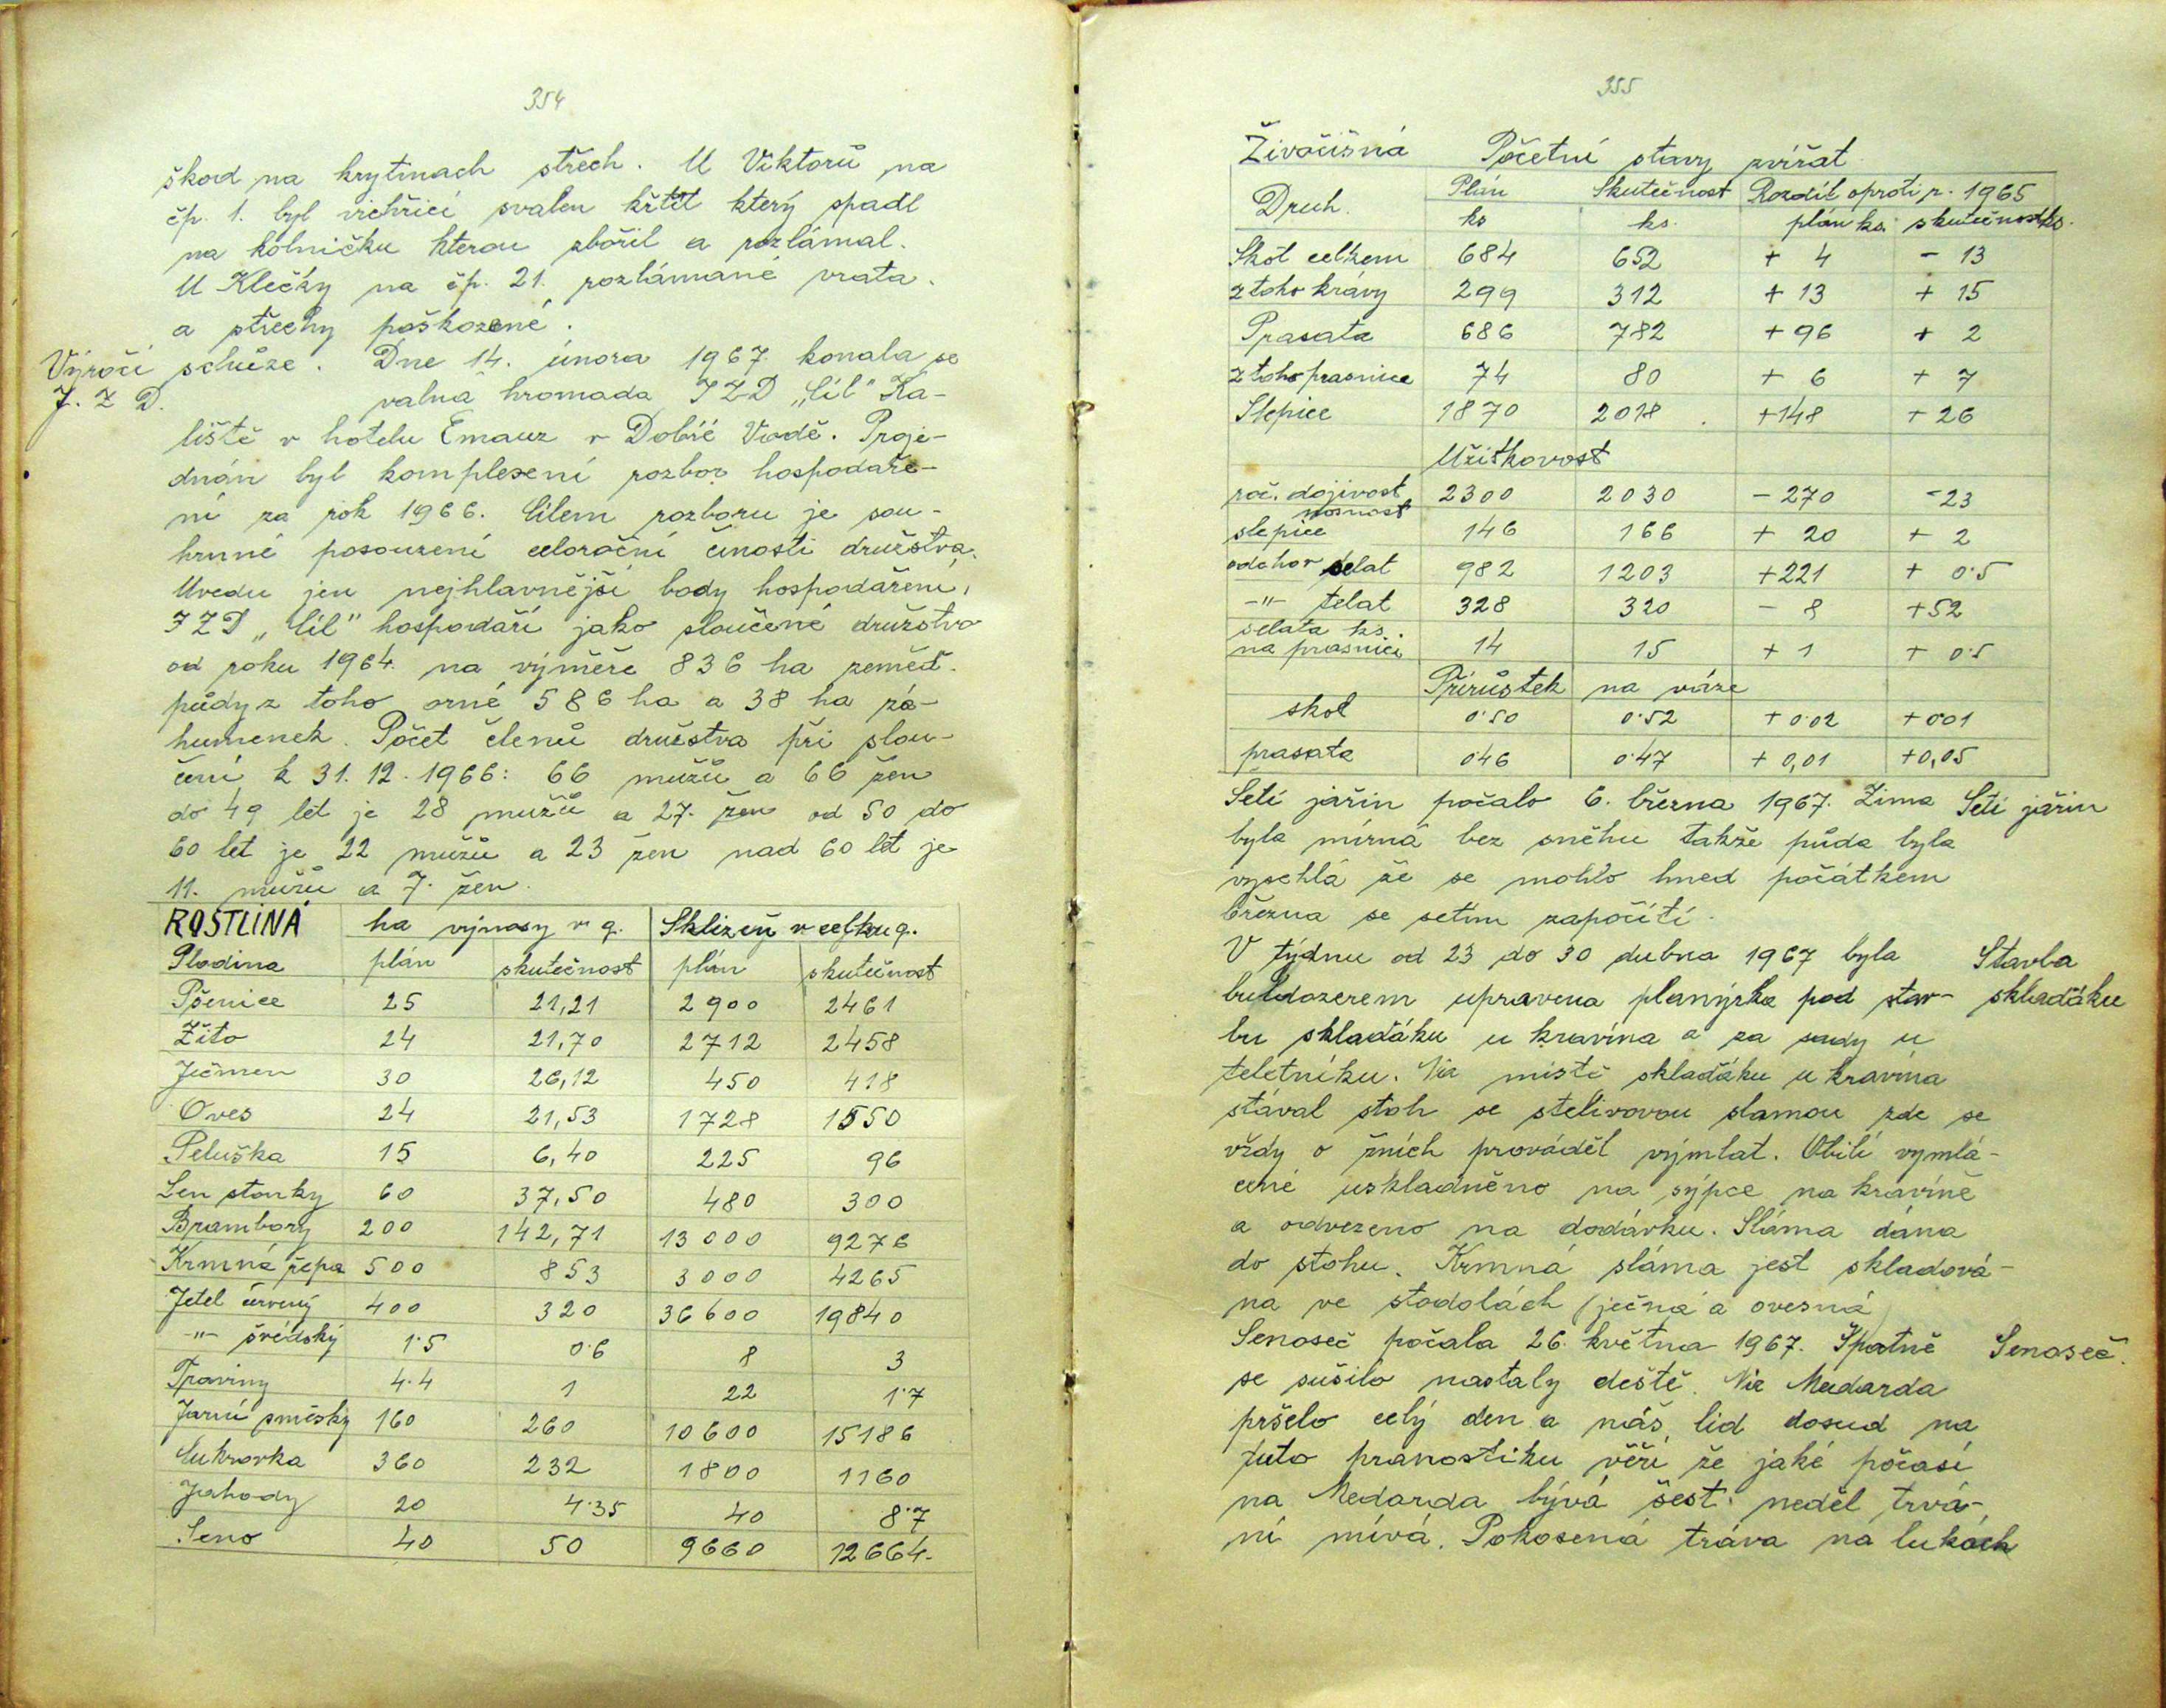 354
škod na krytinach střech. U Viktorů na
čp. 1. byl vichřicí svalen křtít který spadl
na kolničku kterou zbořil a rozlámal.
U Klečky na čp. 21. rozlámané vrata.
a střechy poškozené.
Výročí schůze. Dne 14. února 1967 konala se
J. Z D. valná hromada JZD „Cíl" Ka-
liště v hotelu Emauz v Dobré Vodě. Proje-
dnán byl komplexení rozbor hospodaře-
ní za rok 1966. Cílem rozboru je sou-
hrnné posouzení celoroční činosti družstva.
Uvedu jen nejhlavnější body hospodaření,
JZD „Cíl" hospodaří jako sloučené družstvo
od roku 1964 na výměře 836 ha zeměd.
půdy z toho orné 586 ha a 38 ha zá-
humenek. Počet členů družstva při slou-
čení k 31. 12. 1966: 66 mužů a 66 žen
do 49 let je 28 mužů a 27. žen od 50 do
60 let je 22 mužů a 23 žen nad 60 let je
11. mužů a 7. žen.
ROSTLINÁ ha výnosy v q. Sklizeň v celku q.
Plodina plán skutečnost plán skutečnost
Pšenice 25 21,21 2900 2461
Žito 24 21,70 2712 2458
Ječmen 30 26,12 450 418
Oves 24 21,53 1728 1550
Peluška 15 6,40 225 96
Len stonky 60 37,50 480 300
Brambory 200 142,71 13000 9276
Krmná řepa 500 853 3000 4265
Jetel červený 400 320 36600 19840
-"- švédský 1·5 0·6 8 3
Traviny 4·4 1 22 1·7
Jarní směsky 160 260 10600 15186
Cukrovka 360 232 1800 1160
Jahody 20 4·35 40 8·7
Seno 40 50 9660 12664.
355
Živočišná Početní stavy zvířat
Druh. Plán Skutečnost Rozdíl oproti r. 1965
ks ks. plán ks. skutečnost ks.
Skot celkem 684 652 + 4 - 13
z toho krávy 299 312 + 13 + 15
Prasata 686 782 + 96 + 2
z toho prasnice 74 80 + 6 + 7
Slepice 1870 2018 +148 + 26
Užitkovost
roč. dojivost 2300 2030 - 270 -23
nosnost
slepice 146 166 + 20 + 2
odchov selat 982 1203 +221 + 0·5
-"- telat 328 320 - 8 +52
selata ks.
na prasnici 14 15 + 1 + 0·5
Přírůstek na váze
skot 0·50 0·52 + 0·02 + 0·01
prasata 0·46 0·47 + 0,01 +0,05
Setí jařin počalo 6. března 1967. Zima Setí jařin
byla mírná bez sněhu takže půda byla
vyschlá že se mohlo hned počátkem
března se setím započíti.
V týdnu od 23 do 30 dubna 1967 byla Stavba
buldozerem upravena planýrka pod stav- skladáku
bu skladáku u kravína a za sady u
teletníku. Na místě skladáku u kravína
stával stoh se stelivovou slamou zde se
vždy o žních prováděl výmlat. Obilí vymlá-
cené uskladněno na sýpce na kravíně
a odvezeno na dodávku. Sláma dána
do stohu. Krmná sláma jest skladová-
na ve stodolách (ječná a ovesná)
Senoseč počala 26. května 1967. Špatně Senoseč.
se sušilo nastaly deště. Na Medarda
pršelo celý den a náš lid dosud na
tuto pranostiku věří že jaké počasí
na Medarda bývá šest neděl trvá-
ní mívá. Pokosená tráva na lukách